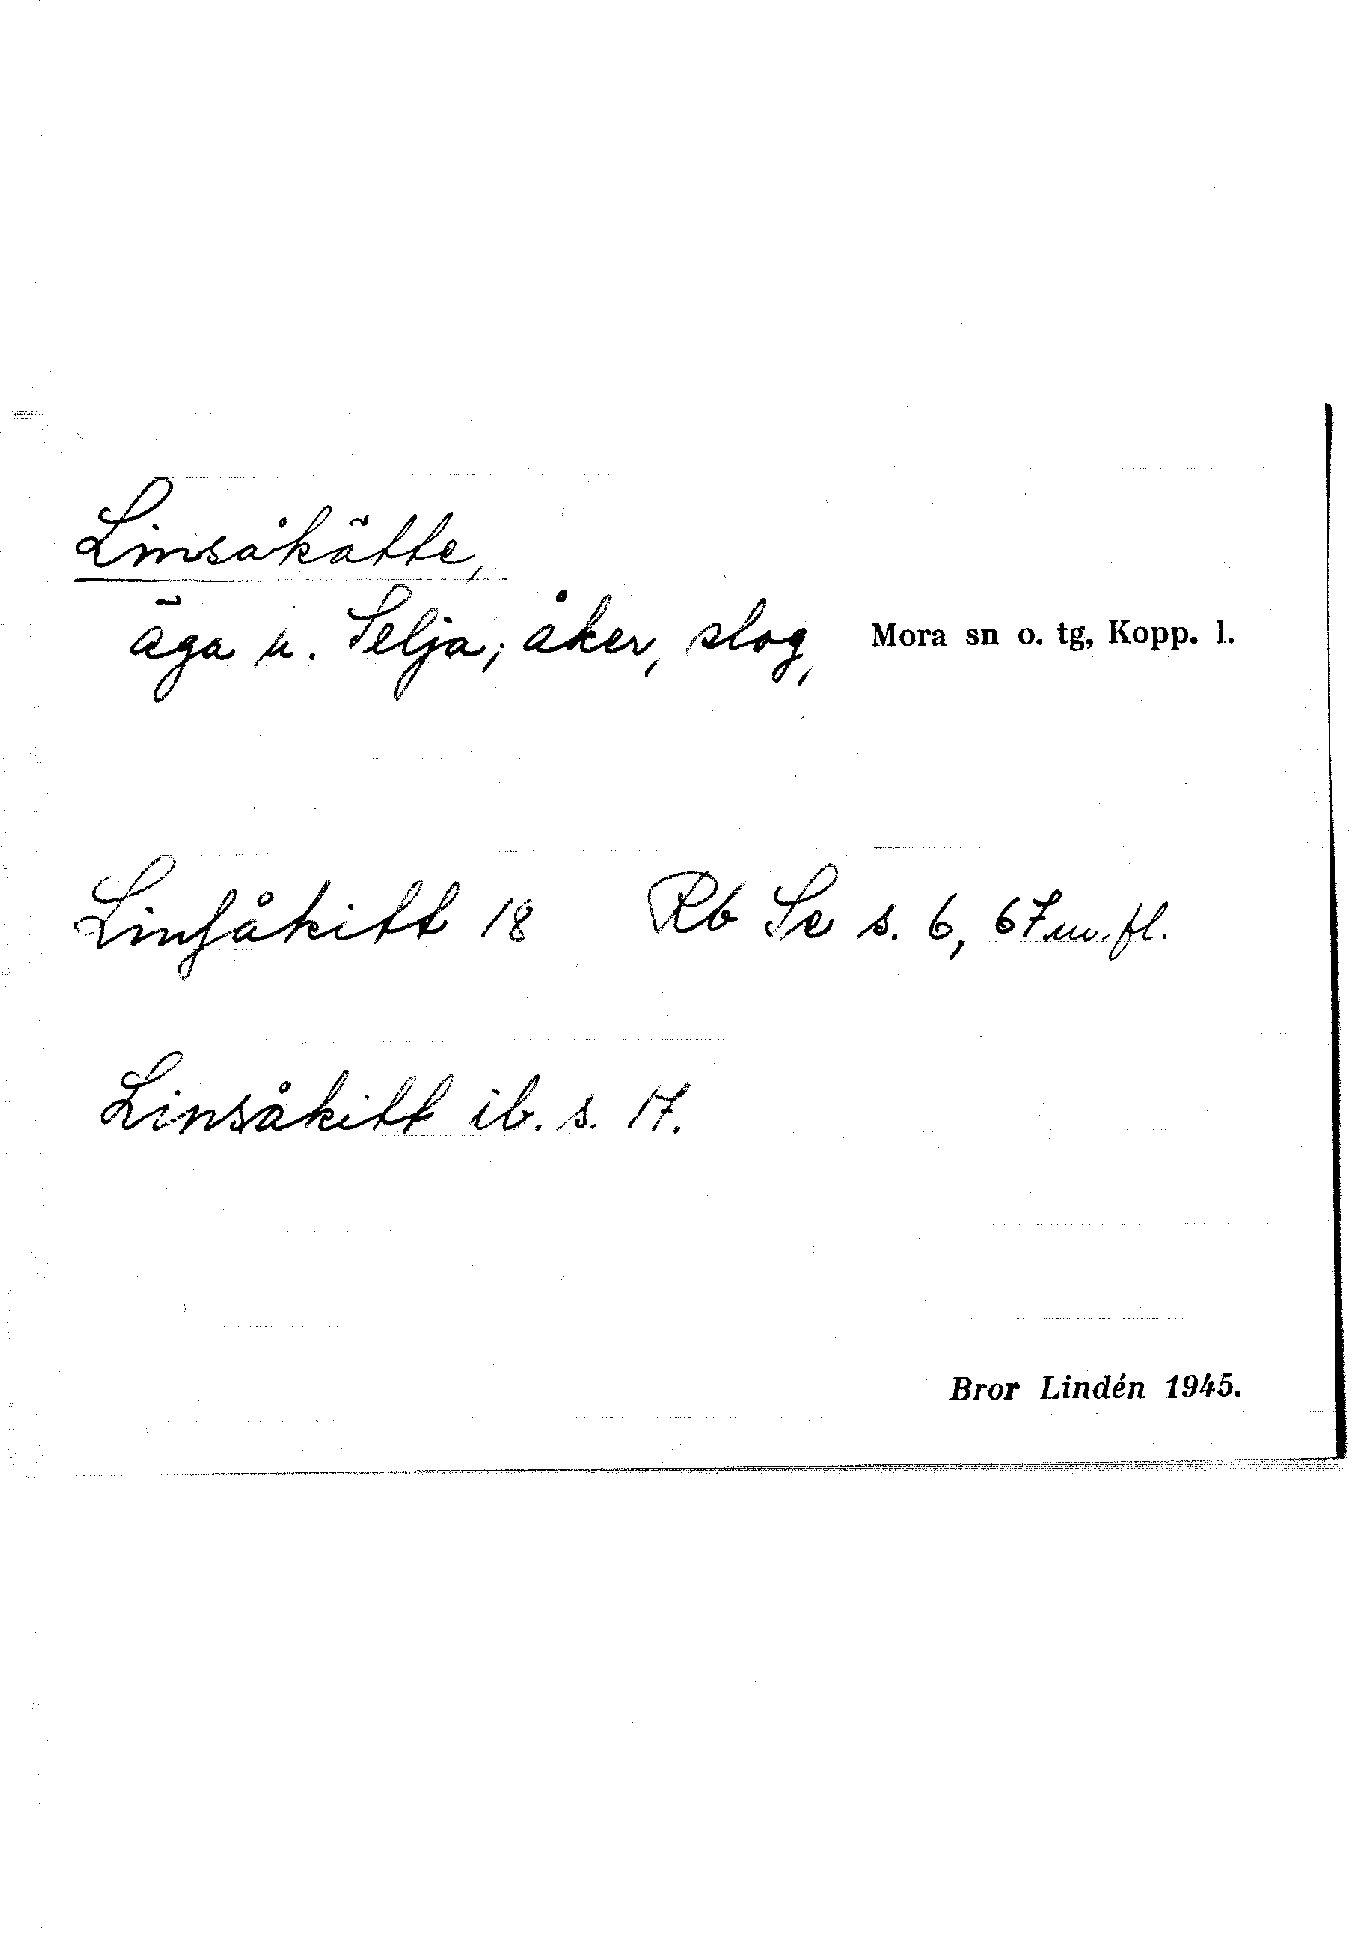 Linsåkätte,
äga u. Selja; åker, slog, Mora sn o. tg, Kopp. l.
Linſåkitt 18 Rb Se s. 6, 67 m. fl.
Linsåkitt ib. s. 17.
Bror Lindén 1945.